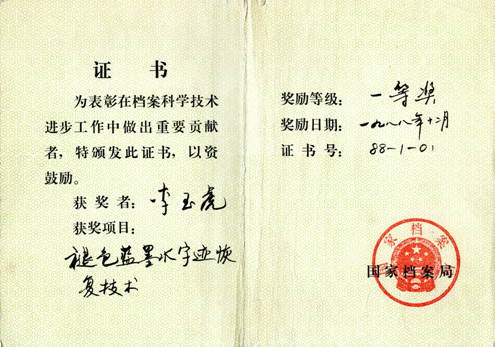 证 书
为表彰在档案科学技术
进步工作中做出重要贡献
者，特颁发此证书，以资
鼓励。
获 奖 者：李玉虎
获奖项目：
褪色蓝墨水字迹恢
复技术
奖励等级：一等奖
奖励日期：一九八八年十二月
证 书 号：88-1-01
国家档案局
国家档案局